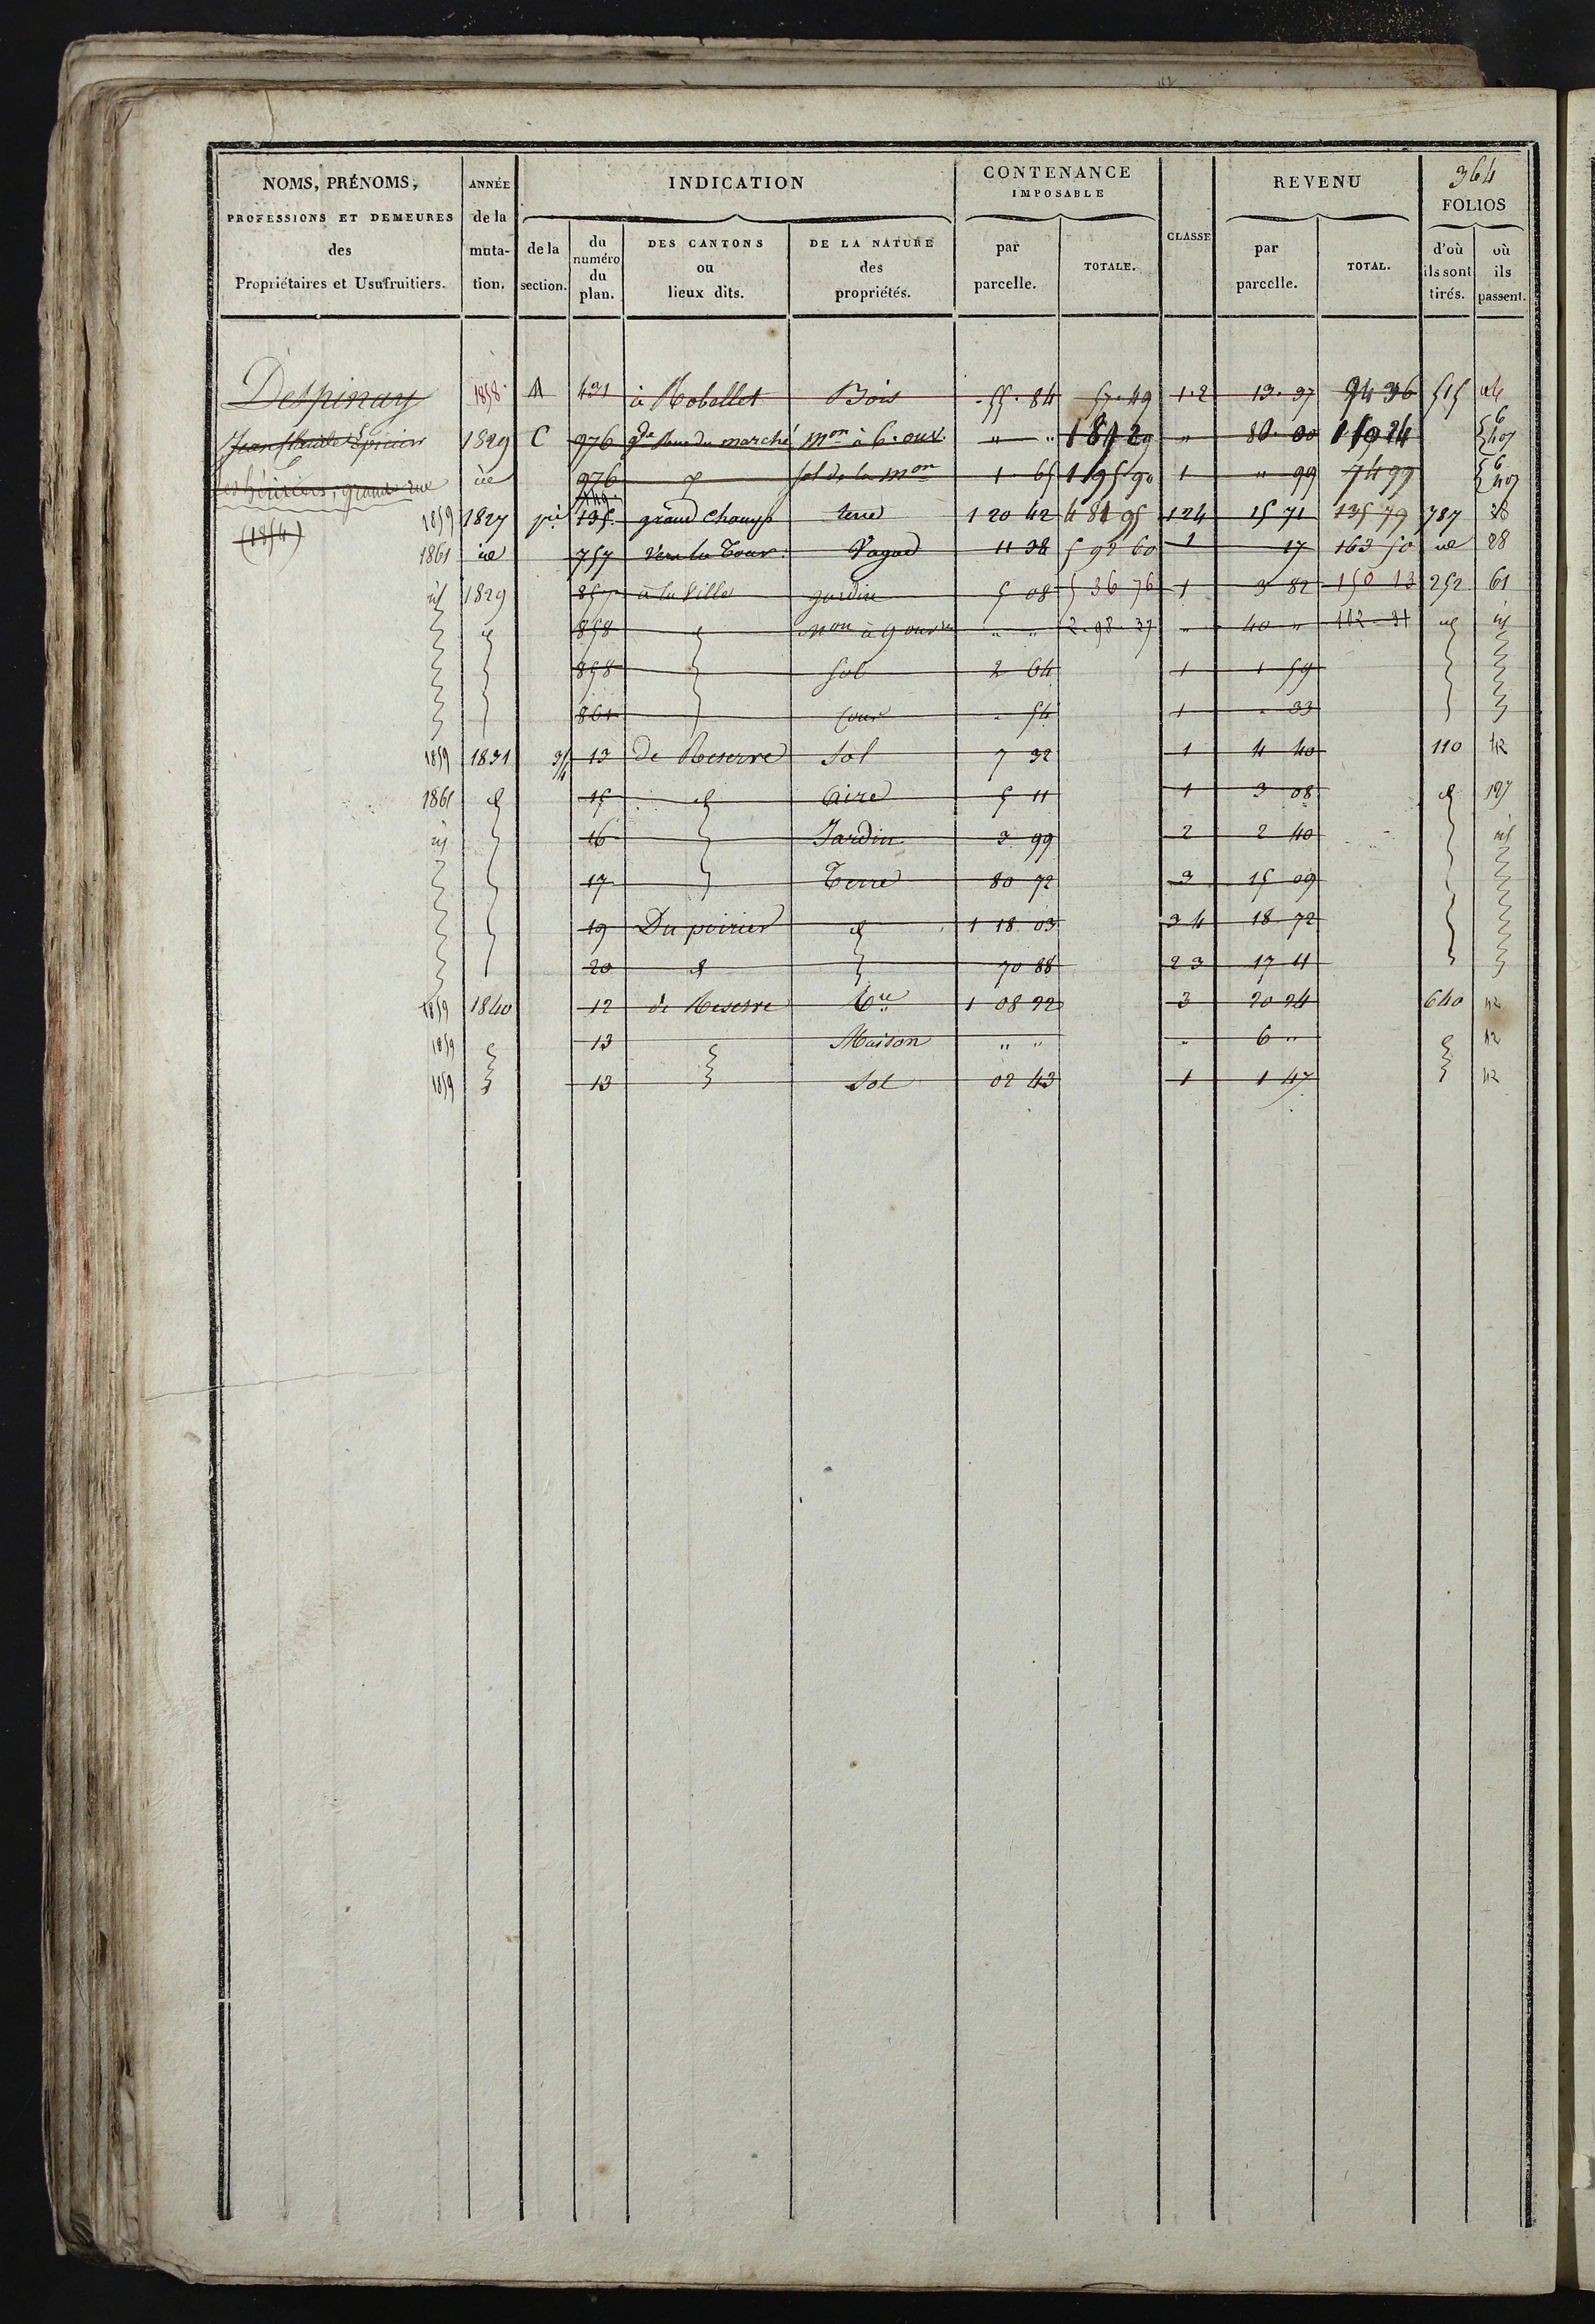 364
NOMS, PRÉNOMS, PROFESSIONS ET DEMEURES des Propriétaires et Usufruitiers.
ANNÉE de la muta- tion.
INDICATION
de la section.
du numéro du plan.
DES CANTONS ou lieux dits.
DE LA NATURE des propriétés.
CONTENANCE IMPOSABLE
par parcelle.
TOTALE.
CLASSE
REVENU
par parcelle.
TOTAL.
FOLIOS
d'où ils sont tirés.
où ils passent.
Despinay 1858 431 à Robellet Bois 55.84 57.49 1.2 13.97 94 36 515
Jean Epicier 1829 C 976 Gde Rue du marché mon à 6. ouv. " " " 80.00
les héritiers, grande rue 976 sol de la mon 1 65 1 95 90 1 " 99 74 99
(1854) 1859 1827 135 grand Champ terre 1 20 42 4 81 95 1 2 4 15 71 135 79 787 28
1861 757 Vers la Tour Vague 11 38 5 92 60 1 17 163 50 28
1829 857 à la Ville jardin 5 08 5 36 76 1 3 82 150 13 252 61
858 mon à 9 ouvres " " 2.98.37 " 40 " 112.31
858 sol 2 64 1 1 59
861 cour . 54 1 . 33
1859 1831 13 de Reserve Sol 7 32 1 4 40 110 42
1861 15 Aire 5 11 1 3 08 127
16 Jardin 3 99 2 2 40
17 Terre 80 72 3 15 09
19 Du poirier 1 18 03 3 4 18 72
20 70 88 2 3 17 11
1859 1840 12 de Reserve Tre 1 08 22 3 20 24 640 42
1859 13 Maison " " " 6 " 42
1859 13 Sol 02 43 1 1 47 42